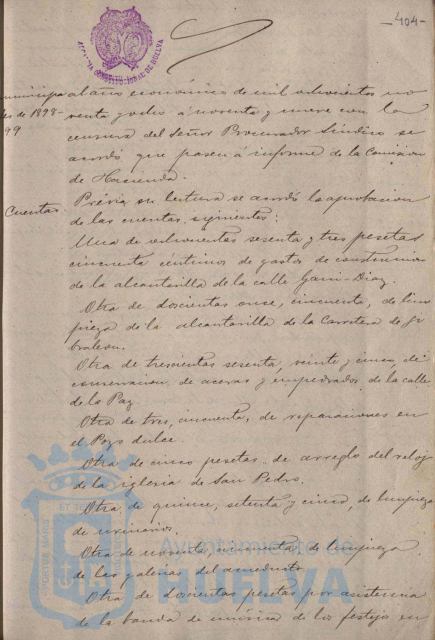 -404-
ALCALDIA CONSTITUCIONAL DE HUELVA
municipa al año económico de mil ochocientos no
les de 1898- venta y ocho á noventa y nueve con la
99 censura del Señor Procurador Síndico se
acordó que pasen á informe de la Comision
de Hacienda.
Cuentas Prévia su lectura se acordó la aprobacion
de las cuentas siguientes:
Una de ochocientas sesenta y tres pesetas
cincuenta céntimos de gastos de
de la alcantarilla de la calle Garci-Diaz.
Otra de doscientas once, cincuenta, de lim
pieza de la alcantarilla de la Carretera de Gi
braleon.
Otra de trescientas sesenta, veinte y cinco de
conservacion de aceras y empedrados de la calle
de la Paz.
Otra de tres, cincuenta, de reparaciones en
el Pozo dulce.
Otra de cinco pesetas de arreglo del reloj
de la iglesia de San Pedro.
Otra de quince, setenta y cinco, de limpieza
de urinarios.
Otra de noventa, cincuenta de limpieza
de las galerias del acueducto.
Otra de doscientas pesetas por asistencia
de la banda de música de los festejos en
Ayuntamiento de
HUELVA